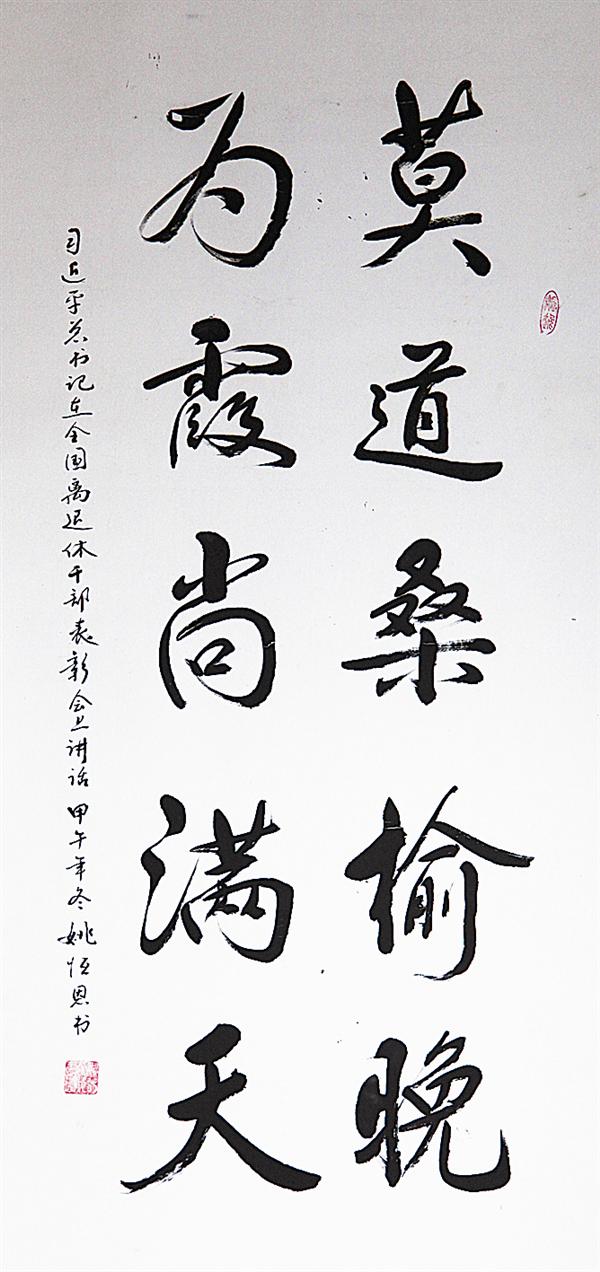 莫道桑榆晚
为霞尚满天
习近平总书记在全国离退休干部表彰会上讲话 甲午年冬 姚恒恩书